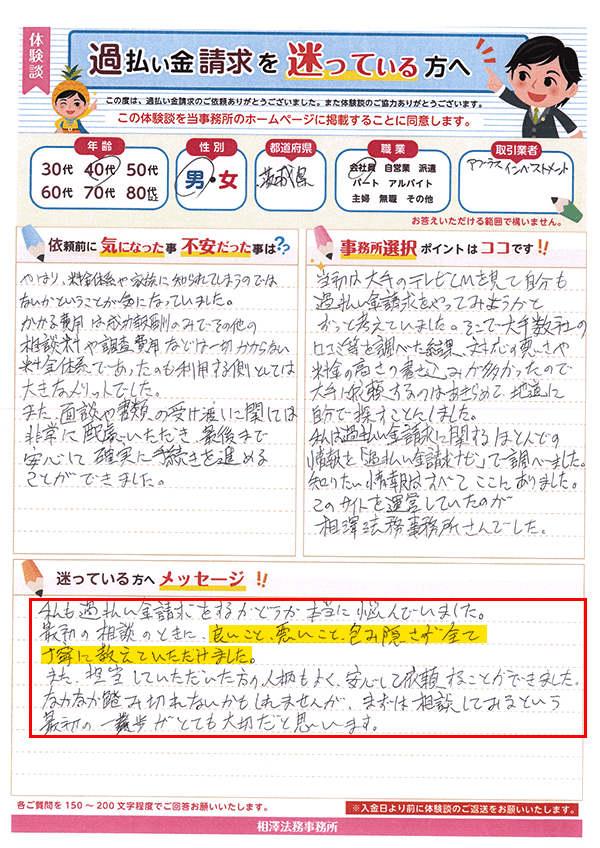 体験談
過払い金請求を迷っている方へ
この度は、過払い金請求のご依頼ありがとうございました。また体験談のご協力ありがとうございます。
この体験談を当事務所のホームページに掲載することに同意します。
年齢
30代 40代 50代
60代 70代 80代以上
性別
男・女
都道府県
茨城県
職業
会社員 自営業 派遣
パート アルバイト
主婦 無職 その他
取引業者
アプラスインベストメント
お答えいただける範囲で構いません。
依頼前に気になった事 不安だった事は??
やはり、料金体系や家族に知られてしまうのでは
ないかということが気になっていました。
かかる費用は成功報酬のみでその他の
相談料や調査費用などは一切かからない
料金体系であったのも利用する側としては
大きなメリットでした。
また、面談や書類の受け渡しに関しては
非常に配慮いただき、最後まで
安心して確実に手続きを進める
ことができました。
事務所選択ポイントはココです!!
当初は大手のテレビCMを見て自分も
過払い金請求をやってみようかと
ずっと考えていました。そこで大手数社の
口コミ等を調べた結果、対応の悪さや
料金の高さの書き込みが多かったので
大手に依頼するのはあきらめて、地道に
自分で探すことにしました。
私は過払い金請求に関するほとんどの
情報を「過払い金請求ナビ」で調べました。
知りたい情報はすべてここにありました。
このサイトを運営していたのが
相澤法務事務所さんでした。
迷っている方へメッセージ!!
私も過払い金請求をするかどうか本当に悩んでいました。
最初の相談のときに、良いこと、悪いこと、包み隠さず全て
丁寧に教えていただけました。
また、担当していただいた方の人柄もよく、安心して依頼することができました。
なかなか踏み切れないかもしれませんが、まずは相談してみるという
最初の一歩がとても大切だと思います。
各ご質問を150～200文字程度でご回答お願いいたします。
※入金日より前に体験談のご返送をお願いいたします。
相澤法務事務所